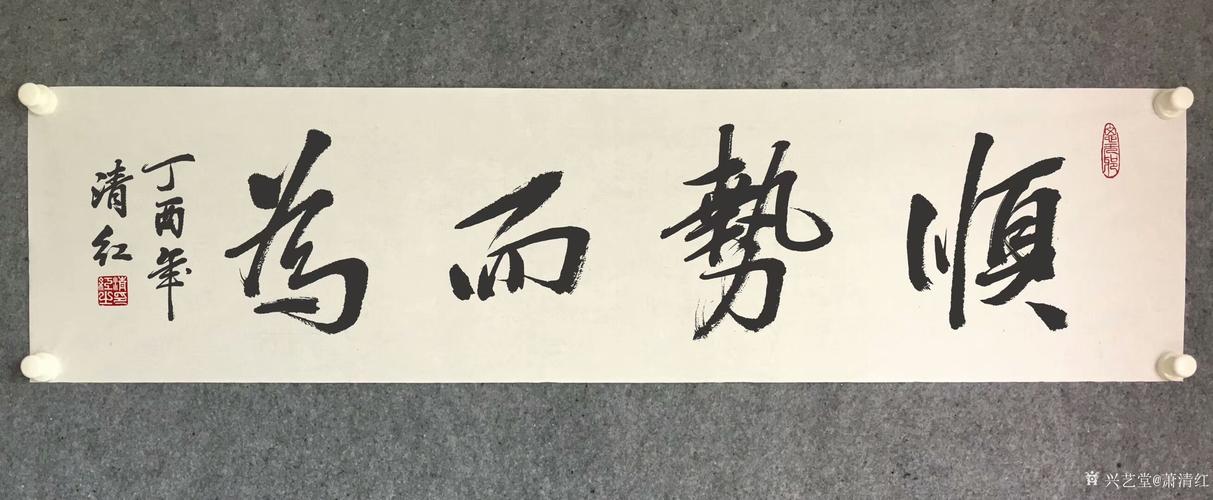 順勢而為
丁酉年
清红
兴艺堂@萧清红